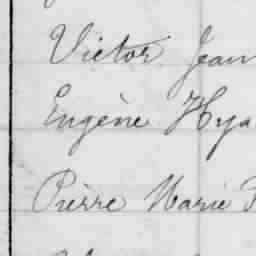 Victor Jean
Eugène Hya
Pierre Marie